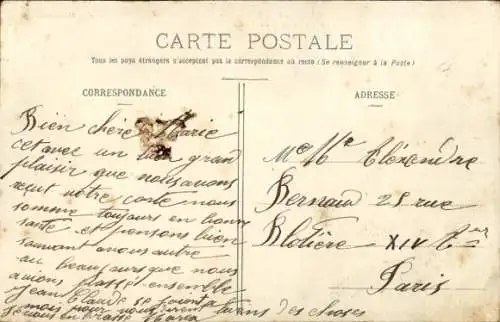 CARTE POSTALE
Tous les pays étrangers n'acceptent pas la correspondance au recto (Se renseigner à la Poste)
CORRESPONDANCE
ADRESSE
Bien chère Marie
cet avec un bien grand
plaisir que nous avons
reçut votre carte nous
somme toujours en bonne
santé et pensons bien
souvant a vous autre
au beau jours que nous
avions passé ensemble
Jean Claude se
mois pour nous des choses
Me Alexendre
Bernard 25 rue
Blotière XIV
Paris